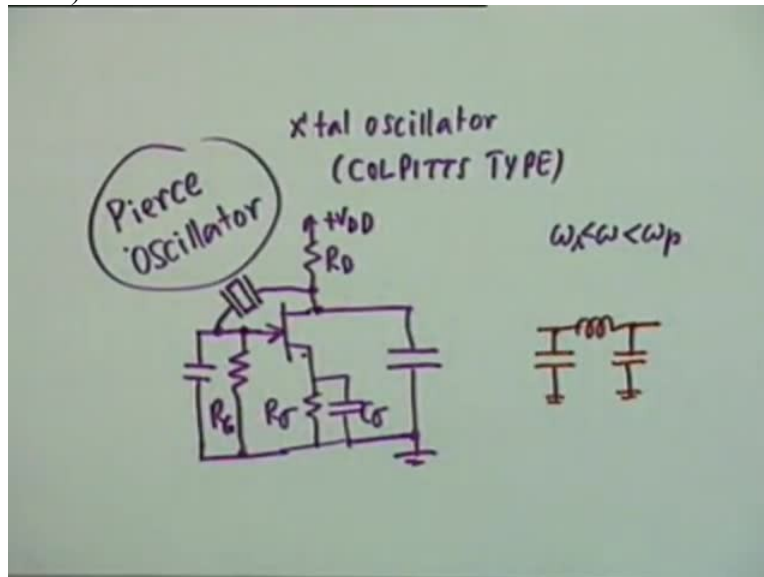 x'tal oscillator
(COLPITTS TYPE)
Pierce
oscillator
+VDD
RD
ωs<ω<ωp
RG
Rσ
Cσ